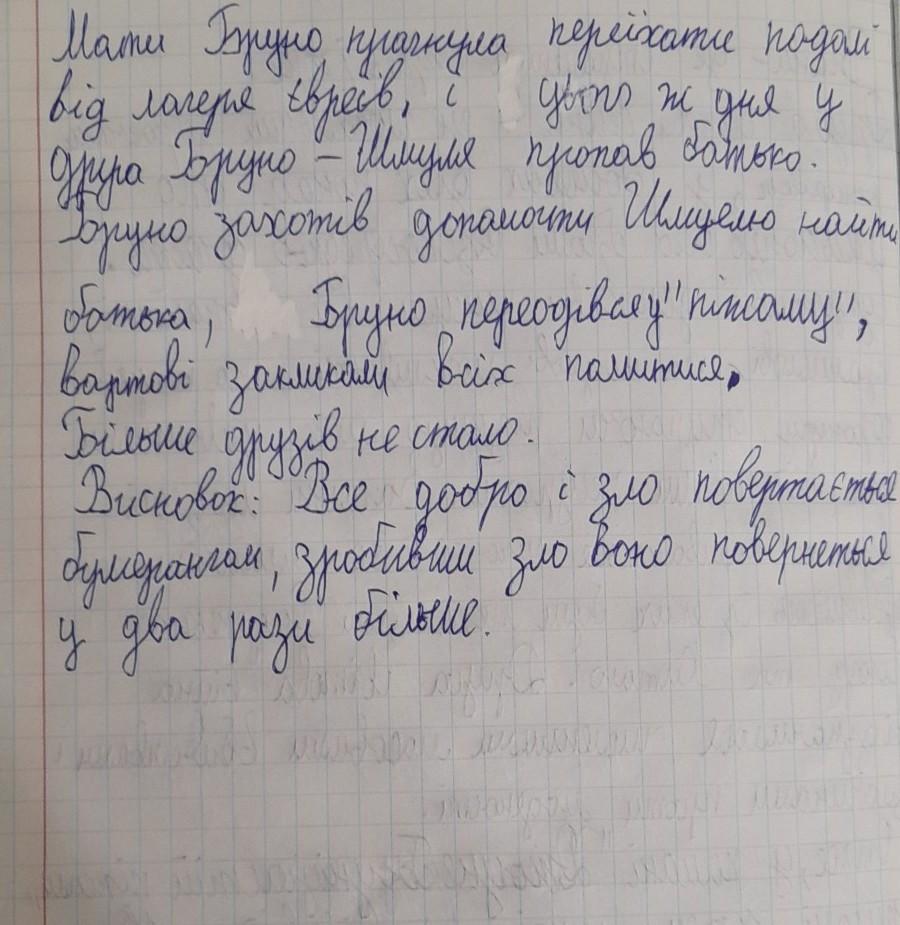 Мати Бруно прагнула переїхати подалі
від лагеря євреїв, і цього ж дня у
друга Бруно – Шмуля пропав батько.
Бруно захотів допомогти Шмуелю найти
батька, Бруно переодівся у "піжаму",
вартові закликали всіх помитися.
Більше друзів не стало.
Висновок: Все добро і зло повертається
бумерангом, зробивши зло воно повернеться
у два рази більше.